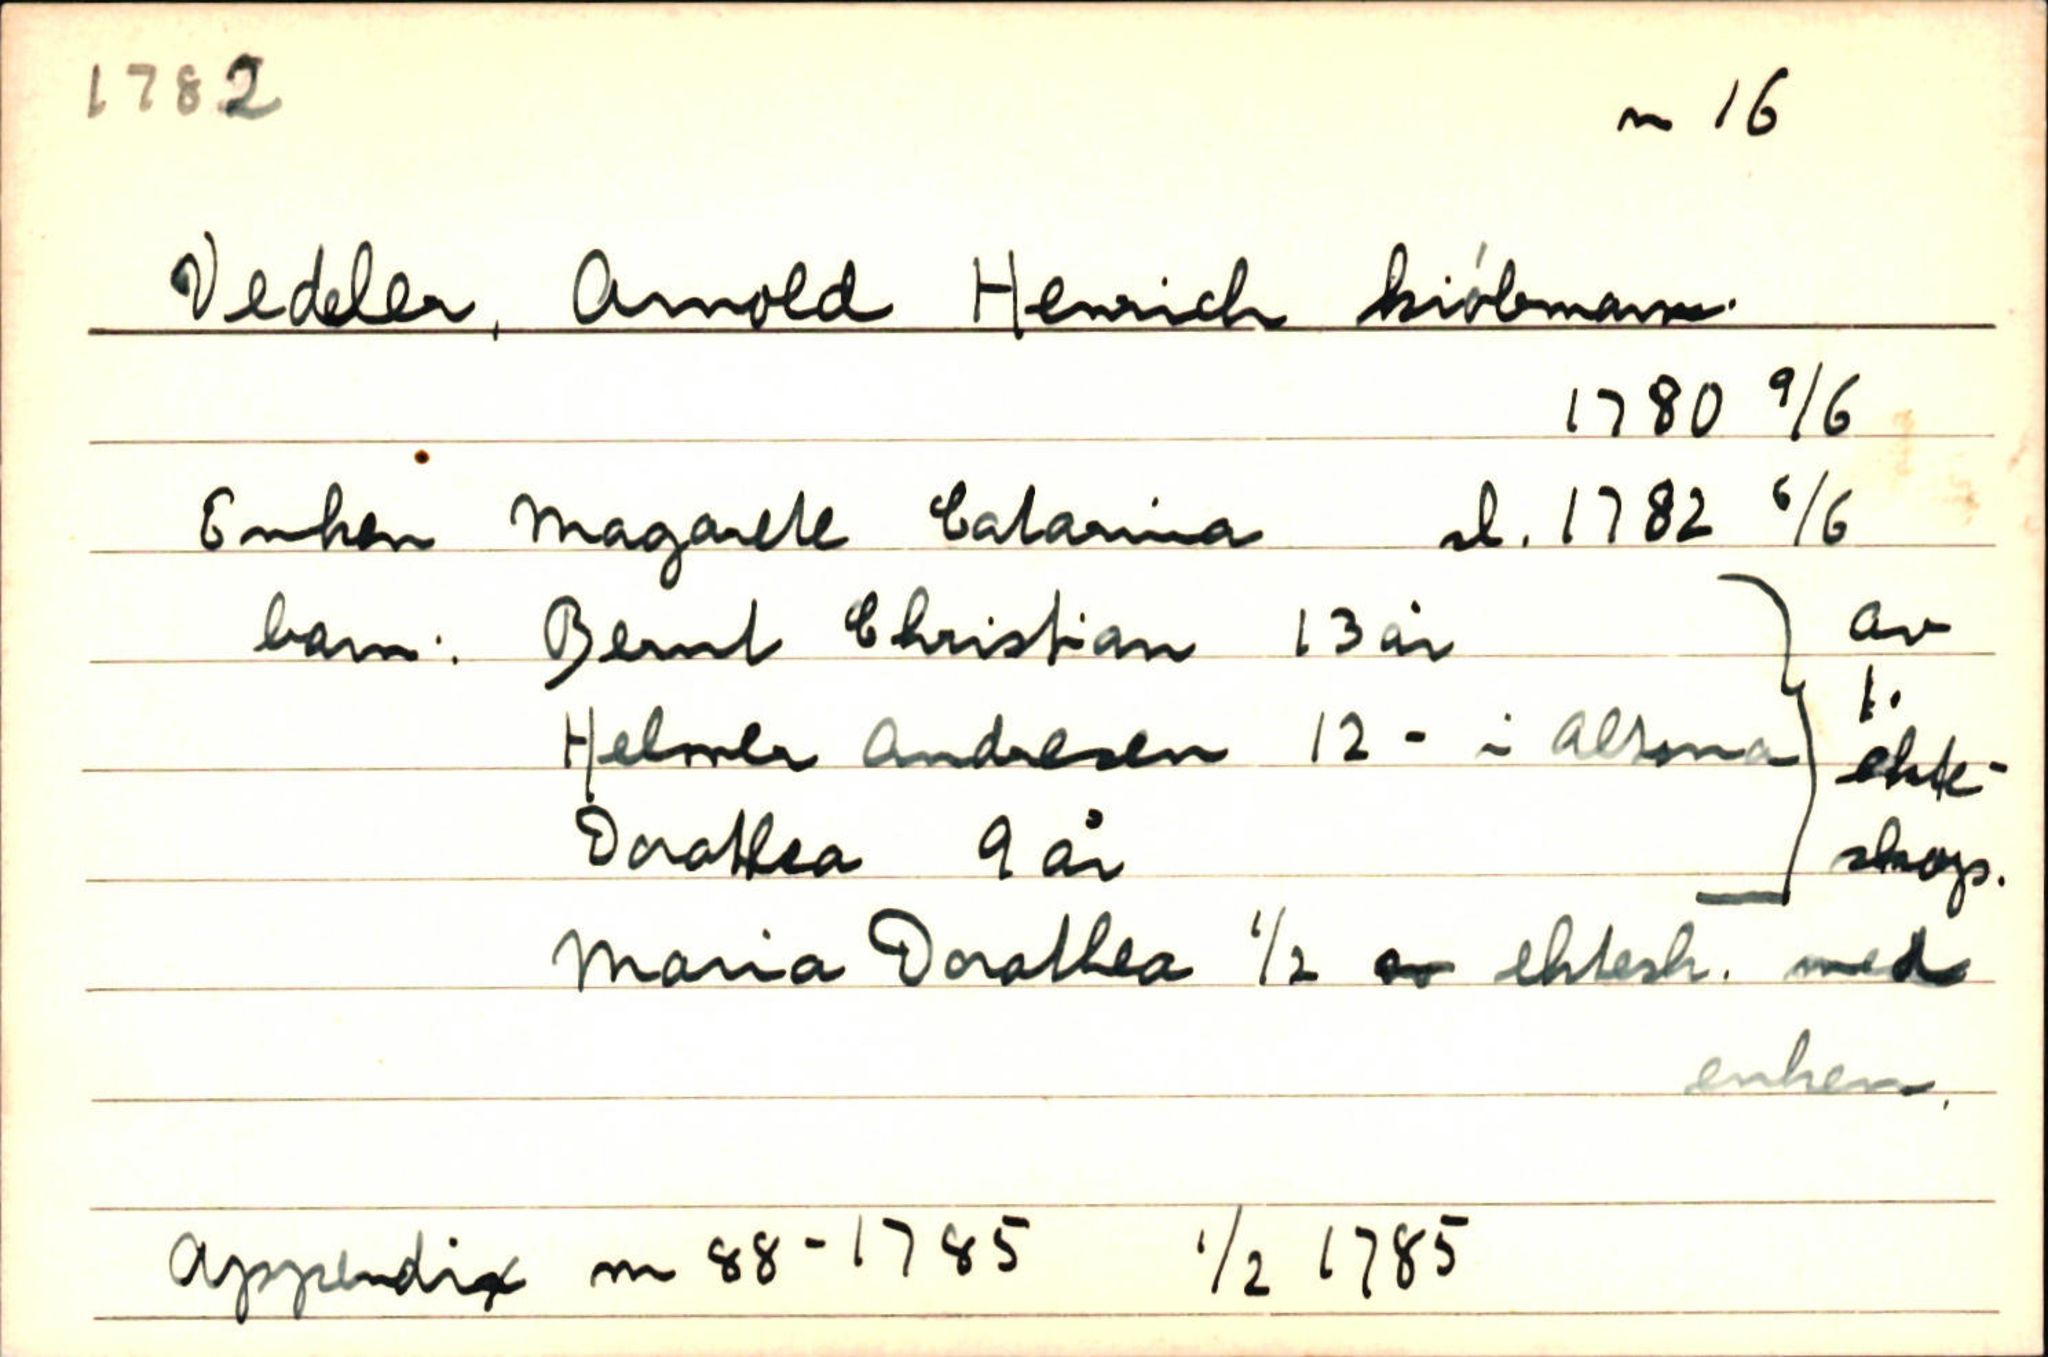 1782
n 16
Vedeler, Arnold Henrich kiöbmann.
1780 9/6
Enken Magarete Catarina sl. 1782 6/6
barn: Bernt Christian 13 år
Helmer Andresen 12 - i Altona
Dorathea 9 år
} av 1. ekte-skap.
Maria Dorathea 1/2 ektesk. med
enken.
Appendix n 88-1785 1/2 1785